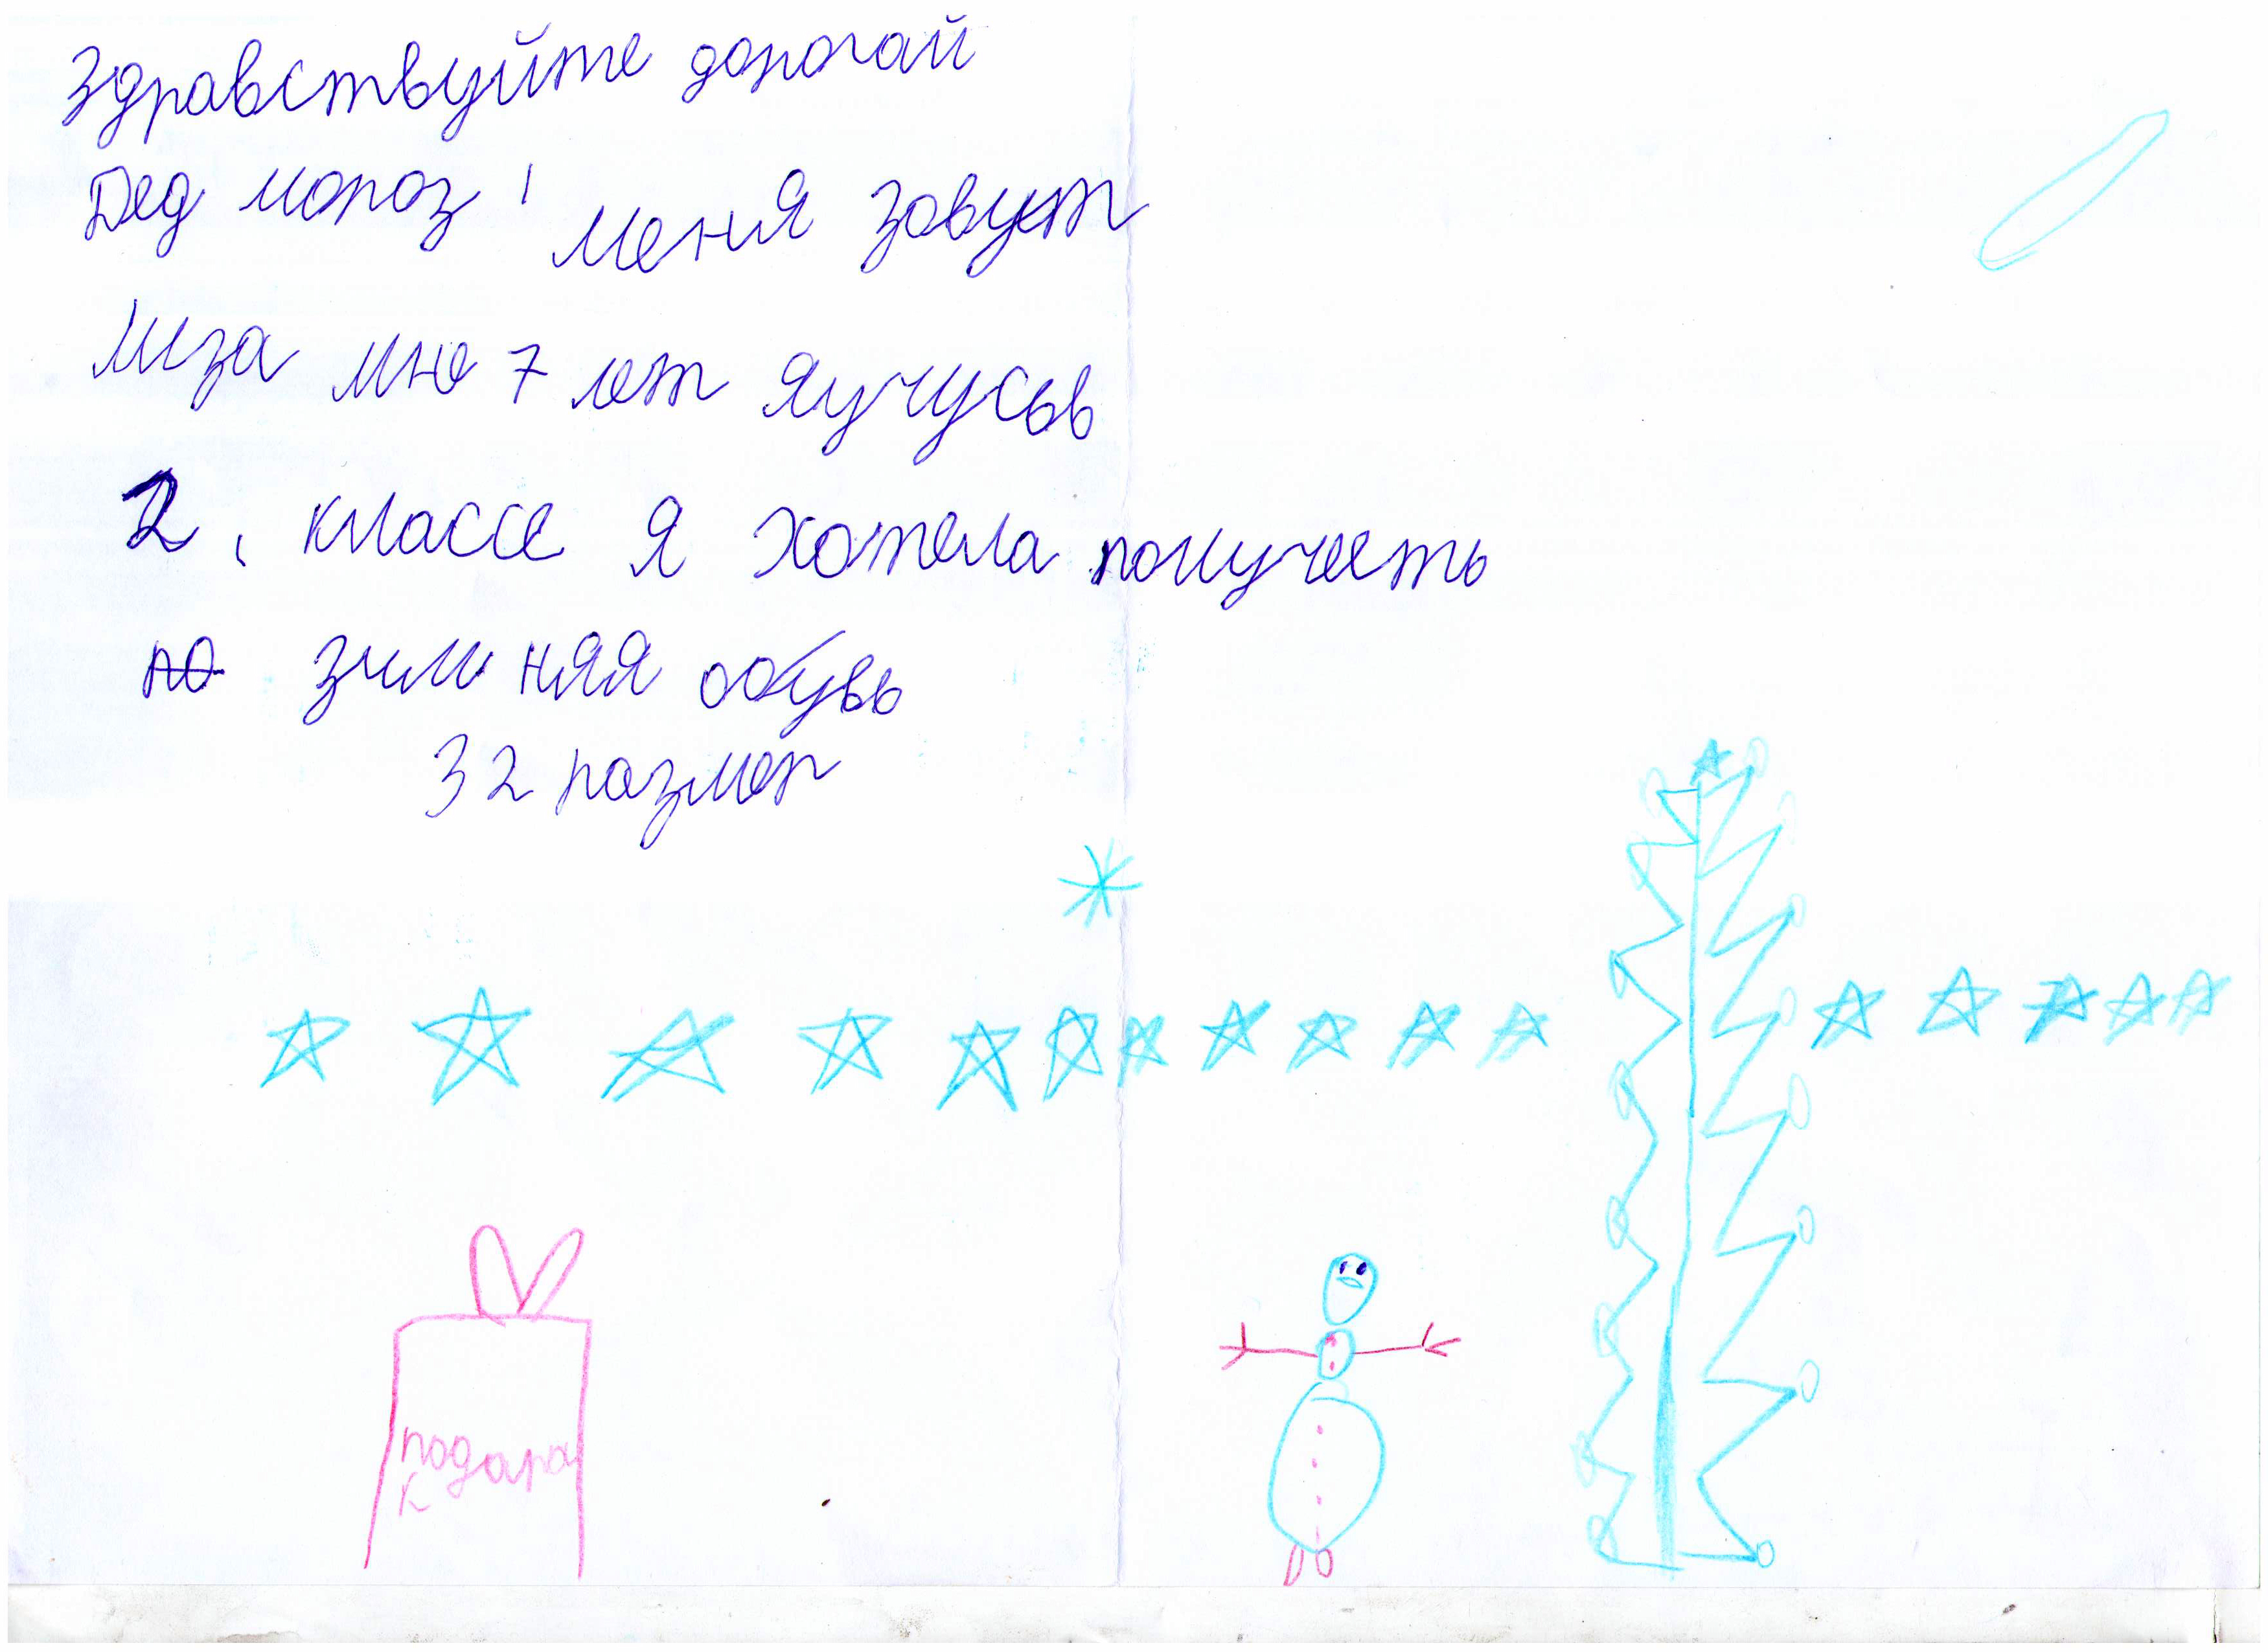 Здравствуйте дорогай
Дед мороз! меня зовут
лиза мне 7 лет яучусьв
2, классе я хотела получеть
зимняя обувь
32 размер
подаро
к